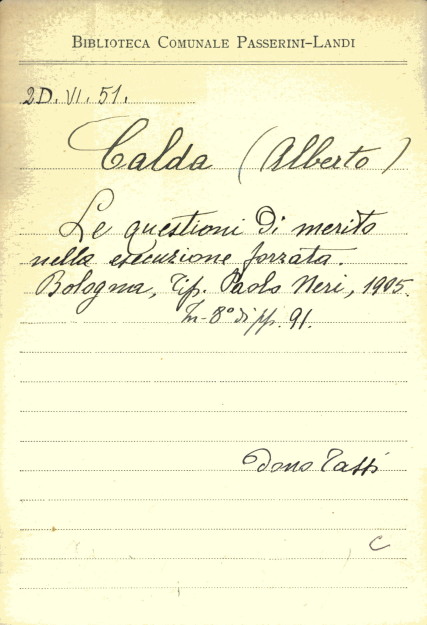 BIBLIOTECA COMUNALE PASSERINI-LANDI
2D. VI. 51.
Calda (Alberto)
Le questioni di merito
nella esecuzione forzata.
Bologna, Tip. Paolo Neri, 1905.
In-8° di pp. 91.
Dono Tassi
C